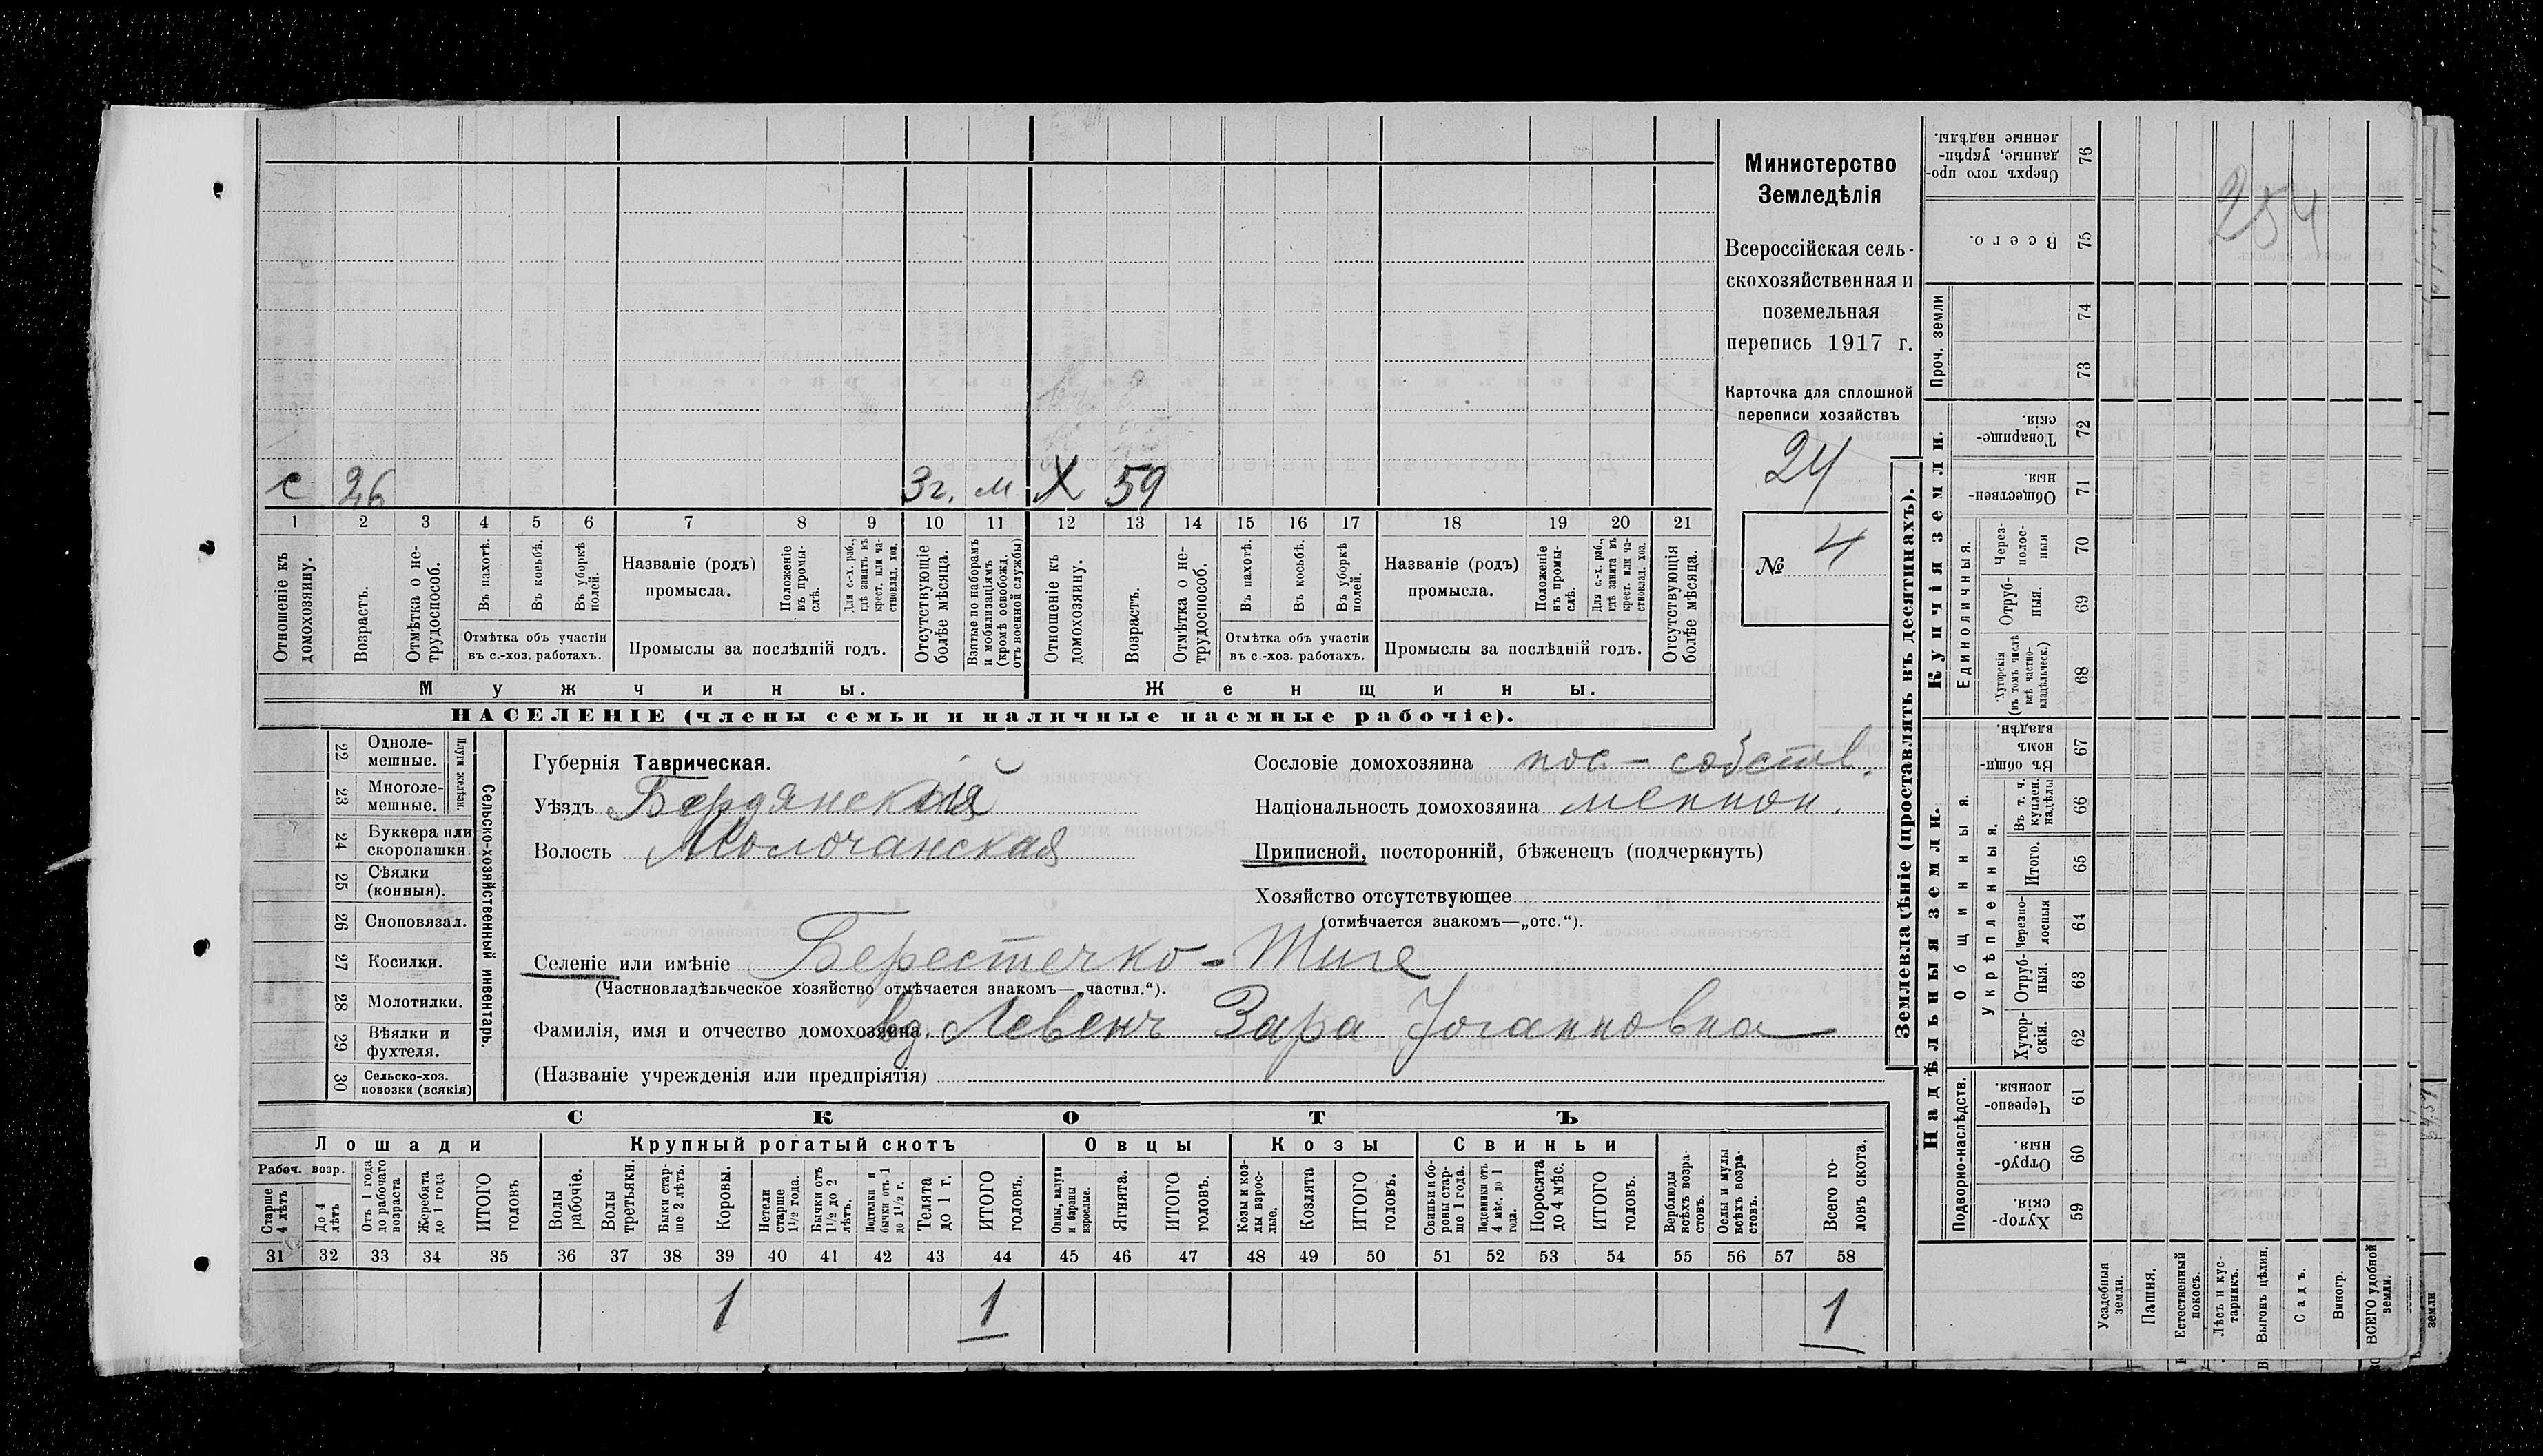 с 26 3 г. м Х 59
1 2 3 4 5 6 7 8 9 10 11 12 13 14 15 16 17 18 19 20 21
Отношеніе къ домохозяину.
Возрастъ.
Отмѣтка о не-трудоспособ.
Въ пахотѣ.
Въ косьбѣ.
Въ уборкѣ полей.
Отмѣтка объ участіи
въ с.-хоз. работахъ.
Названіе (родъ)
промысла.
Положеніе въ промы-слѣ.
Для с.-х. раб., гдѣ занятъ въ крест. или ча-стновлад. хоз.
Промыслы за послѣдній годъ.
Отсутствующіе болѣе мѣсяца.
Взятые по наборамъ и мобилизаціямъ (кромѣ освобожд. отъ военной службы)
Отношеніе къ домохозяину.
Возрастъ.
Отмѣтка о не-трудоспособ.
Въ пахотѣ.
Въ косьбѣ.
Въ уборкѣ полей.
Отмѣтка объ участіи
въ с.-хоз. работахъ.
Названіе (родъ)
промысла.
Положеніе въ промы-слѣ.
Для с.-х. раб., гдѣ занята въ крест. или ча-стновлад. хоз.
Промыслы за послѣдній годъ.
Отсутствующія болѣе мѣсяца.
Мужчины. Женщины.
НАСЕЛЕНІЕ (члены семьи и наличные наемные рабочіе).
Министерство
Земледѣлія
Всероссійская сель-
скохозяйственная и
поземельная
перепись 1917 г.
Карточка для сплошной
переписи хозяйствъ
24
№ 4
22 Одноле-мешные.
23 Многоле-мешные.
Плуги желѣзн.
24 Буккера или скоропашки.
25 Сѣялки (конныя).
26 Сноповязал.
27 Косилки.
28 Молотилки.
29 Вѣялки и фухтеля.
30 Сельско-хоз. повозки (всякія)
Сельско-хозяйственный инвентарь.
Губернія Таврическая.
Уѣздъ Бердянскій
Волость Молочанская
Сословіе домохозяина пос - собств.
Національность домохозяина меннон.
Приписной, посторонній, бѣженецъ (подчеркнуть)
Хозяйство отсутствующее
(отмѣчается знакомъ—„отс.“).
Селеніе или имѣніе Берестечко - Тиге
(Частновладѣльческое хозяйство отмѣчается знакомъ—„частвл.“).
Фамилія, имя и отчество домохозяина вд. Левенъ Зара Іоганновна
(Названіе учрежденія или предпріятія)
СКОТЪ
Лошади Крупный рогатый скотъ Овцы Козы Свиньи
Рабоч. возр.
Старше 4 лѣтъ
До 4 лѣтъ
Отъ 1 года до рабочаго возраста
Жеребята до 1 года
ИТОГО головъ
Волы рабочіе.
Волы третьяки.
Быки стар-ше 2 лѣтъ.
Коровы.
Нетели старше 1½ года.
Бычки отъ 1½ до 2 лѣтъ.
Подтелки и бычки отъ 1 до 1½ г.
Телята до 1 г.
ИТОГО головъ.
Овцы, валухи и бараны взрослые.
Ягнята.
ИТОГО головъ.
Козы и коз-лы взрос-лые.
Козлята
ИТОГО головъ.
Свиньи и бо-ровы стар-ше 1 года.
Подсвинки отъ 4 мѣс. до 1 года.
Поросята до 4 мѣс.
ИТОГО головъ.
Верблюды всѣхъ возра-стовъ.
Ослы и мулы всѣхъ возра-стовъ.
Всего го-ловъ скота.
31 32 33 34 35 36 37 38 39 40 41 42 43 44 45 46 47 48 49 50 51 52 53 54 55 56 57 58
1 1 1
Землевладѣніе (проставлять въ десятинахъ).
Надѣльныя земли. Купчія земли.
Проч. земли
Подворно-наслѣдств.
Общинныя.
Укрѣпленныя.
Единоличныя.
Сверхъ того про-данные, укрѣп-ленные надѣлы. 76
Всего. 75
74
73
Товарище-скія. 72
Обществен-ныя. 71
Через-полос-ныя 70
Отруб-ныя. 69
Хуторскія (въ томъ числѣ всѣ частно-владѣльческ.) 68
Въ общи-номъ владѣн. 67
Въ т. ч. куплен. надѣлы 66
Итого. 65
Черезпо-лосныя 64
Отруб-ныя. 63
Хутор-скія. 62
Черезпо-лосныя. 61
Отруб-ныя. 60
Хутор-скія. 59
Усадебныя земли.
Пашня.
Естественный покосъ.
Лѣсъ и кус-тарникъ.
Выгонъ цѣлин.
Садъ.
Виногр.
ВСЕГО удобной земли.
земли
254